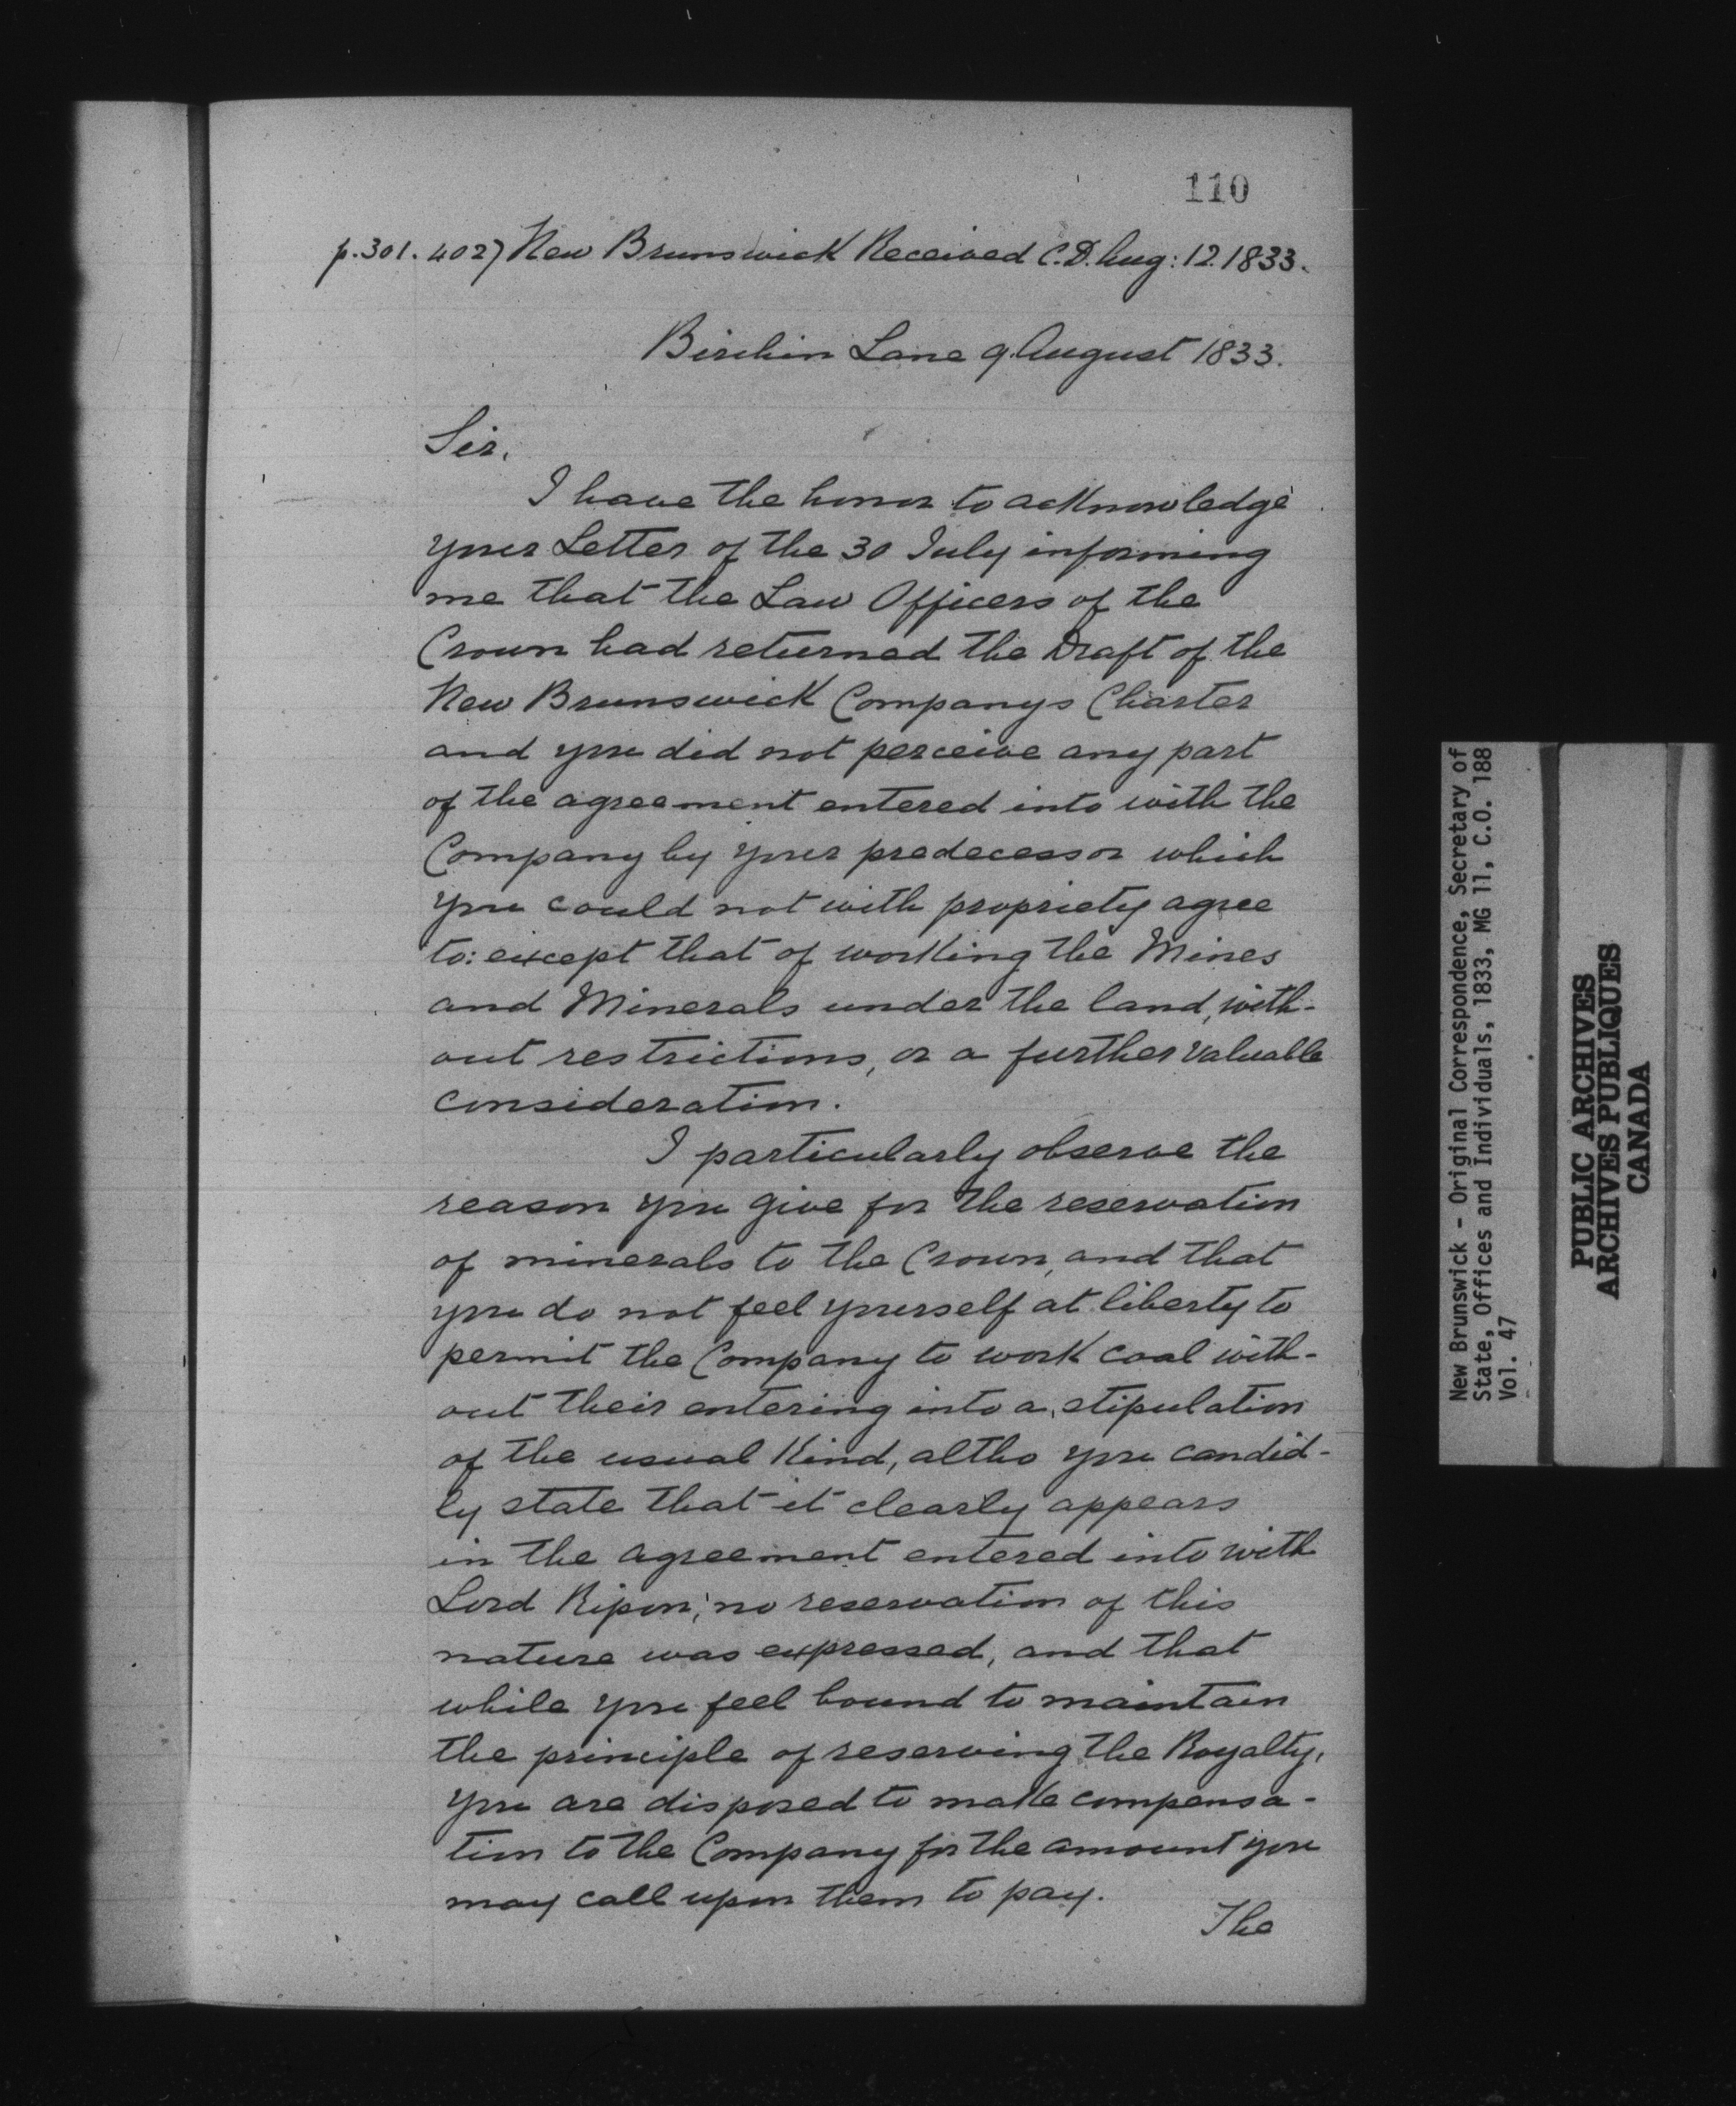 110
p.301. 402) New Brunswick Received C.D. Aug: 12. 1833.
Birchin Lane 9. August 1833.
Sir.
I have the honor to acknowledge
your Letter of the 30 July informing
me that the Law Officers of the
Crown had returned the Draft of the
New Brunswick Companys Charter
and you did not perceive any part
of the agreement entered into with the
Company by your predecessor which
you could not with propriety agree
to: except that of working the Mines
and Minerals under the land, with-
out restrictions, or a further valuable
consideration.
I particularly observe the
reason you give for the reservation
of minerals to the Crown, and that
you do not feel yourself at liberty to
permit the Company to work coal with-
out their entering into a stipulation
of the usual Kind, altho you candid-
ly state that it clearly appears
in the agreement entered into with
Lord Ripon; no reservation of this
nature was expressed, and that
while you feel bound to maintain
the principle of reserving the Royalty,
you are disposed to make compensa-
tion to the Company for the amount you
may call upon them to pay.
The
New Brunswick - Original Correspondence, Secretary of
State, Offices and Individuals, 1833, MG 11, C.O. 188
Vol. 47
PUBLIC ARCHIVES
ARCHIVES PUBLIQUES
CANADA